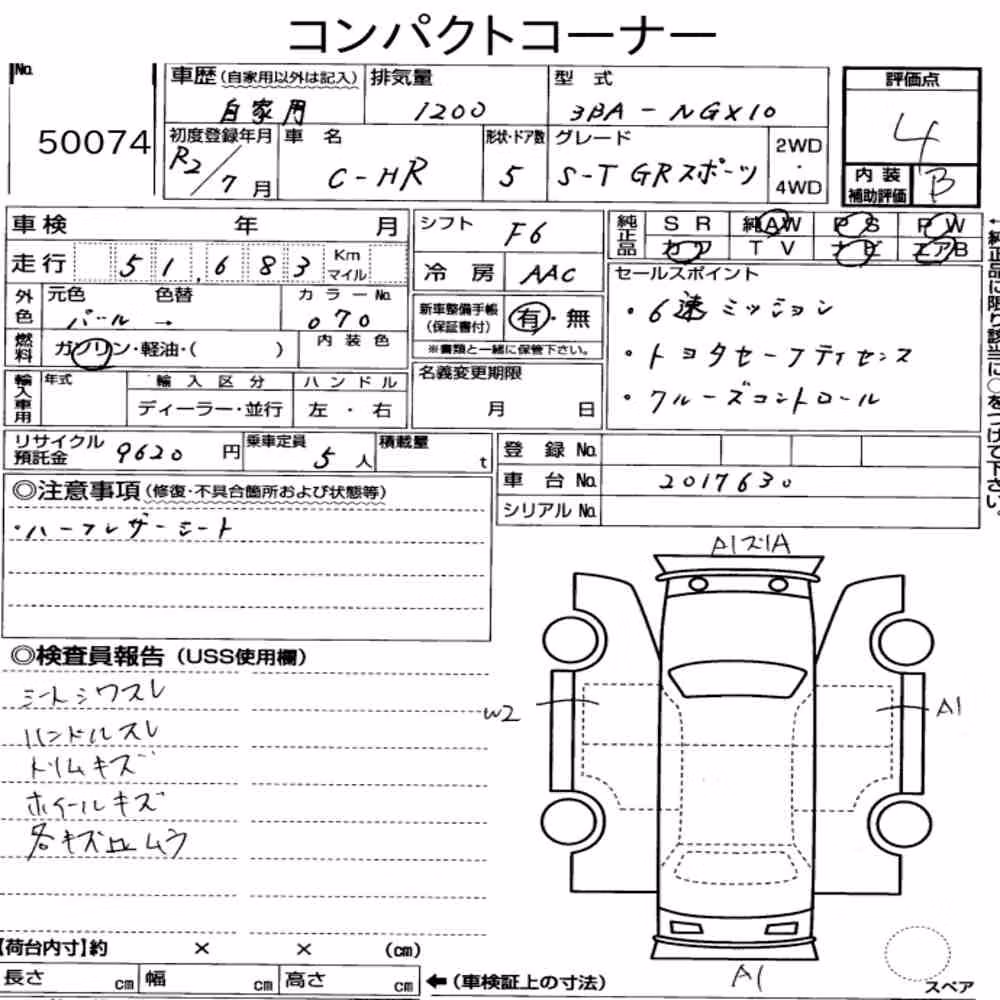 コンパクトコーナー
No. 50074
車歴(自家用以外は記入) 自家用
排気量 1200
型式 3BA-NGX10
評価点 4
初度登録年月 R2/7月
車名 C-HR
形状・ドア数 5
グレード S-T GRスポーツ
2WD・4WD
内装補助評価 B
車検 年 月
シフト F6
純正品 SR 純AW PS PW
カワ TV ナビ エアB
走行 51,683 Km マイル
冷房 AAC
セールスポイント
・6速ミッション
・トヨタセーフティセンス
・クルーズコントロール
←純正品に限り該当に○をつけて下さい。
外色 元色 パール → 色替 カラーNo. 070
新車整備手帳(保証書付) 有・無
※書類と一緒に保管下さい。
燃料 ガソリン・軽油・( ) 内装色
名義変更期限 月 日
輸入車用 年式 輸入区分 ディーラー・並行 ハンドル 左・右
リサイクル預託金 9620円
乗車定員 5人
積載量 t
登録No.
車台No. 2017630
シリアルNo.
◎注意事項(修復・不具合箇所および状態等)
・ハーフレザーシート
◎検査員報告(USS使用欄)
シートシワスレ
ハンドルスレ
トリムキズ
ホイールキズ
各キズ凹ムラ
A1ズ1A
W2
A1
A1
【荷台内寸】約 × × (cm)
長さ cm 幅 cm 高さ cm ←(車検証上の寸法)
スペア